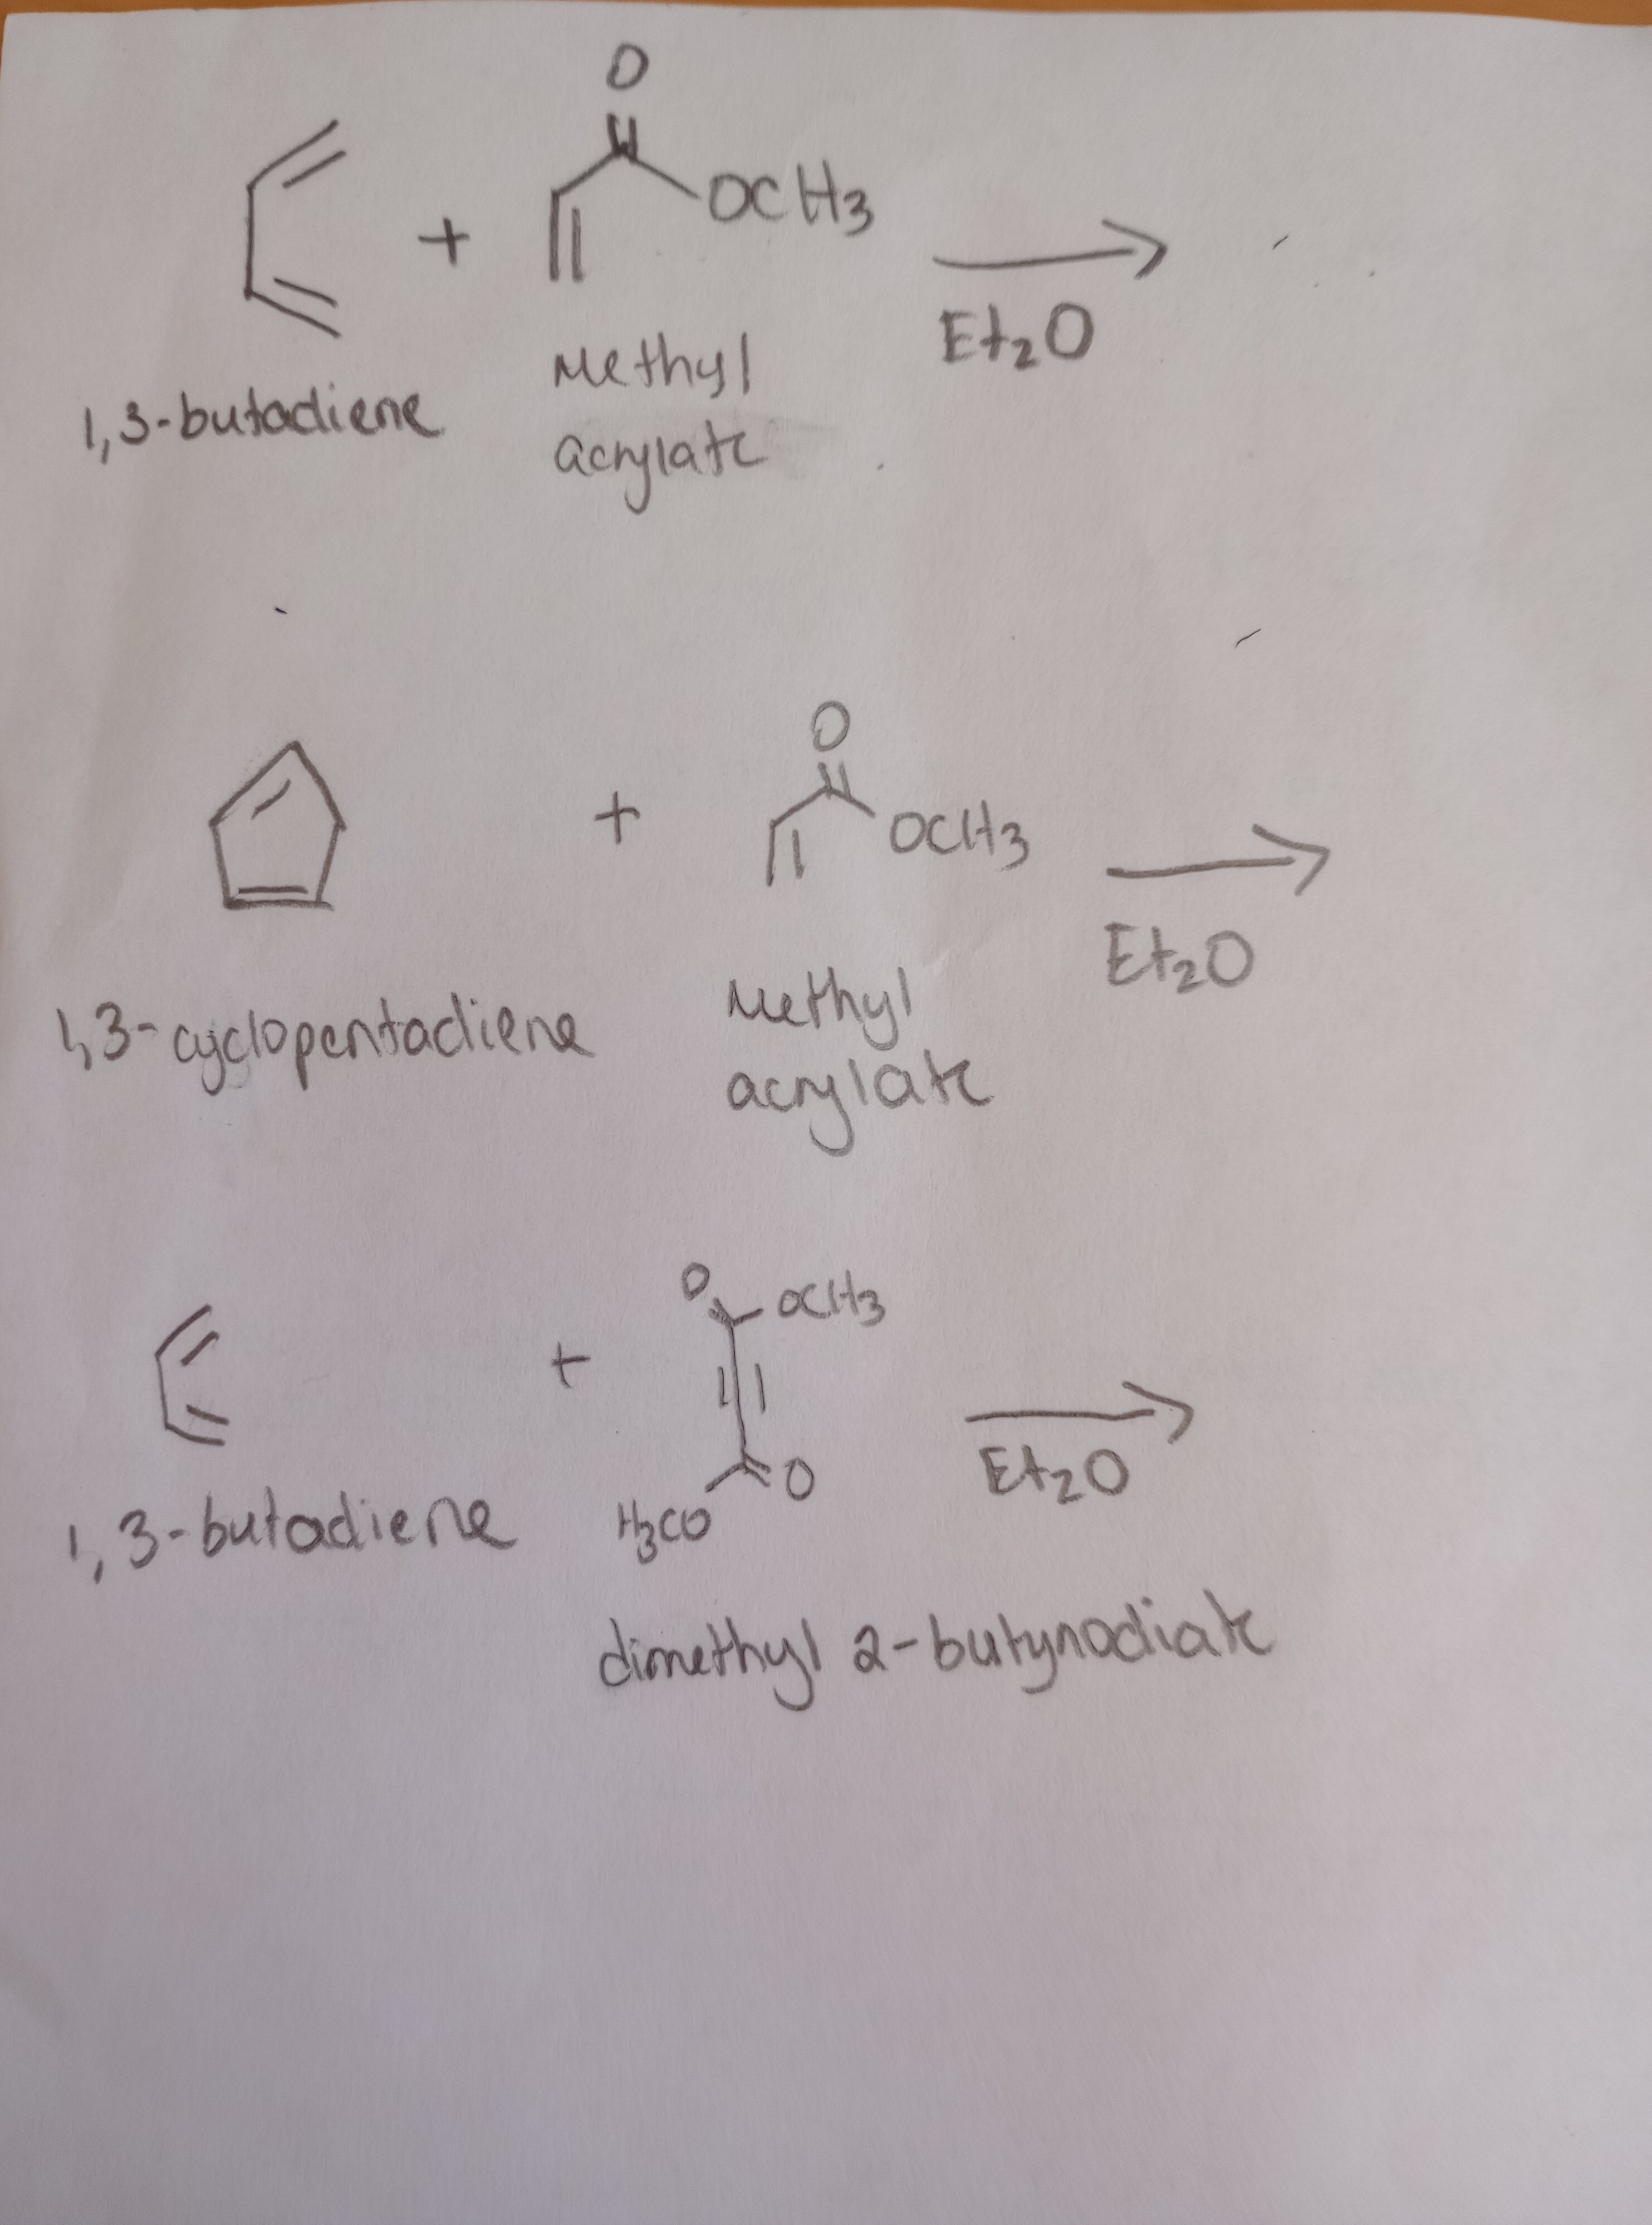 O
OCH3
+
Et2O
1,3-butadiene
Methyl
acrylate
O
+
OCH3
Et2O
1,3-cyclopentadiene
Methyl
acrylate
O
OCH3
+
O
H3CO
Et2O
1,3-butadiene
dimethyl 2-butynodiate